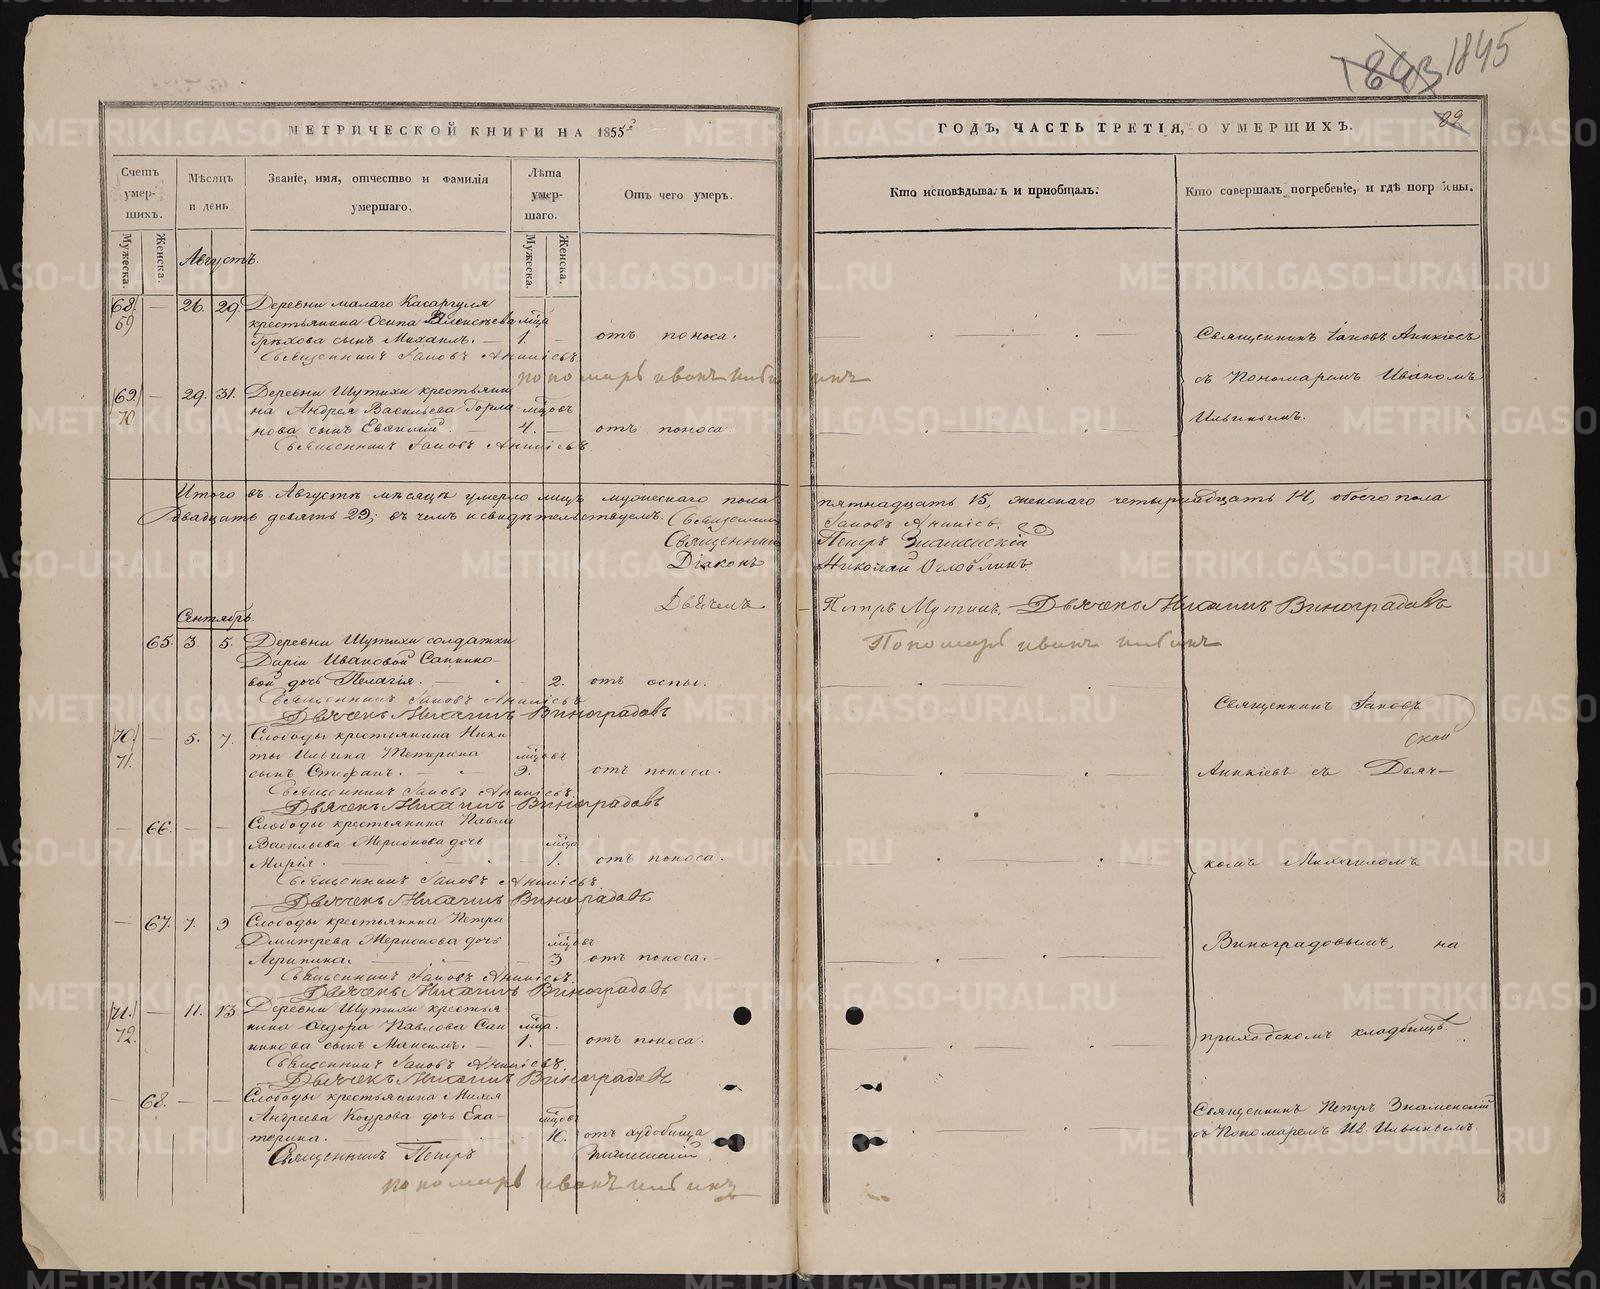 1843 1845
МЕТРИЧЕСКОЙ КНИГИ НА 1855
ГОДЪ, ЧАСТЬ ТРЕТІЯ, О УМЕРШИХЪ.
89
Счетъ умерших.
Мужеска.
Женска.
Мѣсяцъ и день
Званіе, имя, отчество и фамилія умершаго.
Лѣта умершаго.
Мужеска.
Женска.
Отъ чего умеръ.
Кто исповѣдывалъ и пріобщалъ.
Кто совершалъ погребеніе, и гдѣ погребены.
Августъ.
68. 69 — 26. 29. Деревни малаго Касаргуля
крестьянина Осипа Алексѣева мца
Грѣхова сынъ Михаилъ. — 1. — отъ поноса.
Священникъ Іаковъ Аникіевъ
пономарь иванъ ильинъ
Священникъ Іаковъ Аникіевъ
съ Пономаремъ Иваномъ
Ильинымъ.
69. 70. — 29. 31. Деревни Шутихи крестьяни
на Андрея Васильева Горла мцовъ
нова сынъ Евѳимій. — 4. — отъ поноса.
Священникъ Іаковъ Аникіевъ
Итого въ Августѣ мѣсяцѣ умерло лицъ мужескаго пола пятнадцать 15, женскаго четырнадцать 14, обоего пола
двадцать девять 29; въ чемъ и свидѣтельствуемъ. Священникъ Іаковъ Аникіевъ.
Священникъ Петръ Знаменскій
Діаконъ Николай Оглоблинъ
Дьячекъ Петръ Мутинъ. Дьячекъ Михаилъ Виноградовъ
Пономарь иванъ ильинъ
Сентябрь.
65. 3. 5. Деревни Шутихи солдатки
Даріи Ивановой Саннико-
вой дочь Пелагія. — 2. отъ оспы.
Священникъ Іаковъ Аникіевъ
Дьячекъ Михаилъ Виноградовъ
Священникъ Іаковъ
Аникіевъ съ Дьяч-
комъ Михаиломъ
Виноградовымъ, на
приходскомъ кладбищѣ.
70. 71. — 5. 7. Слободы крестьянина Ники
ты Ильина Тетерина мцовъ
сынъ Стефанъ. — 9. отъ поноса.
Священникъ Іаковъ Аникіевъ.
Дьячекъ Михаилъ Виноградовъ
— 66. — — Слободы крестьянина Павла
Васильева Мерионова дочь мца
Марія. — 1. отъ поноса.
Священникъ Іаковъ Аникіевъ
Дьячекъ Михаилъ Виноградовъ
— 67. 7. 9 Слободы крестьянина Петра
Дмитрева Мерионова дочь мцовъ
Агрипина. — 3 отъ поноса.
Священникъ Іаковъ Аникіевъ.
Дьячекъ Михаилъ Виноградовъ
71. 72. — 11. 13. Деревни Шутихи крестья-
нина Ѳедора Павлова Сан мца.
никова сынъ Максимъ. — 1. — отъ поноса.
Священникъ Іаковъ Аникіевъ.
Дьячекъ Михаилъ Виноградовъ
— 68. — — Слободы крестьянина Михея
Андреева Коурова дочь Ека- мцовъ
терина. — 10. отъ худобища
Священникъ Петръ Знаменскій
пономарь иванъ ильинъ
Священникъ Петръ Знаменскій
съ Пономаремъ Ив. Ильинымъ.
METRIKI.GASO-URAL.RU